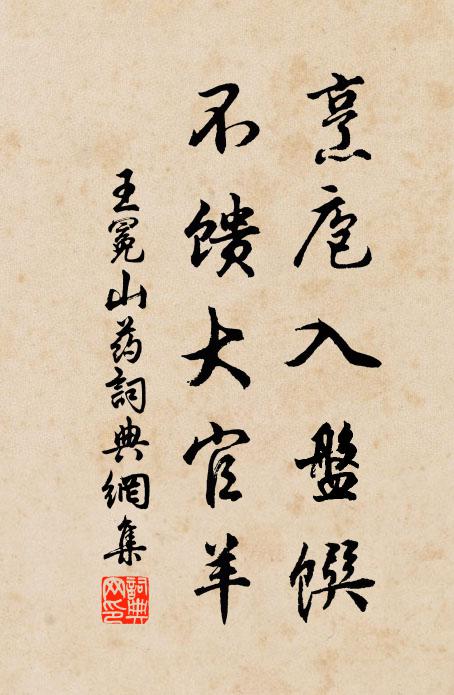 烹庖入盤饌
不饋大官羊
王冕山药詞典網集
詞典网印